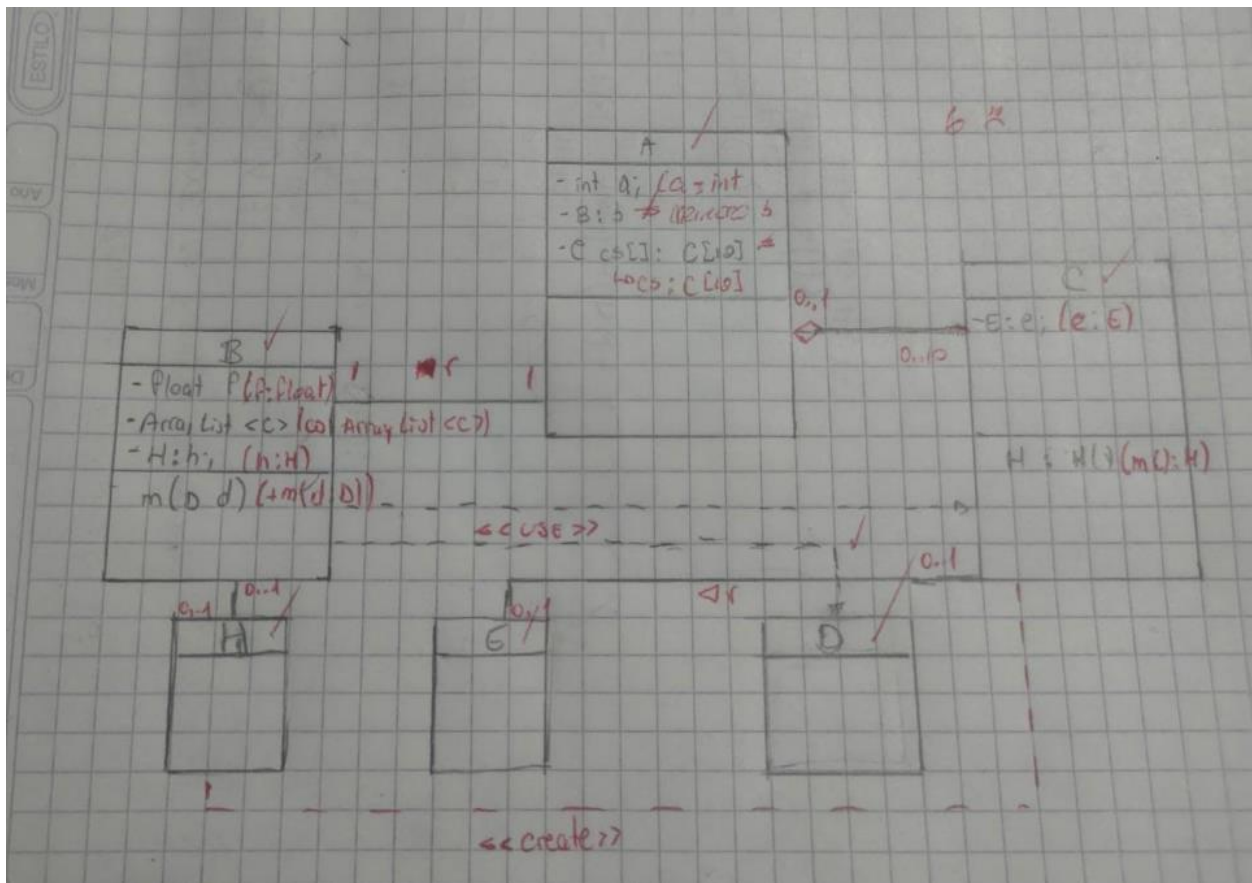 ESTILO
A
- int a; (a = int
- B: b
- C cs[]: C[10]
cs: C[10]
0..1
C
- E: e; (e: E)
0..10
B
- float f (f: float)
- Array List <C> (cs Array List <C>)
- H: h; (h: H)
m(D d) (+m(d D))
1
r
1
(m(): H)
<<USE>>
0..1
0..1
0..1
0..1
r
H
E
D
<<create>>